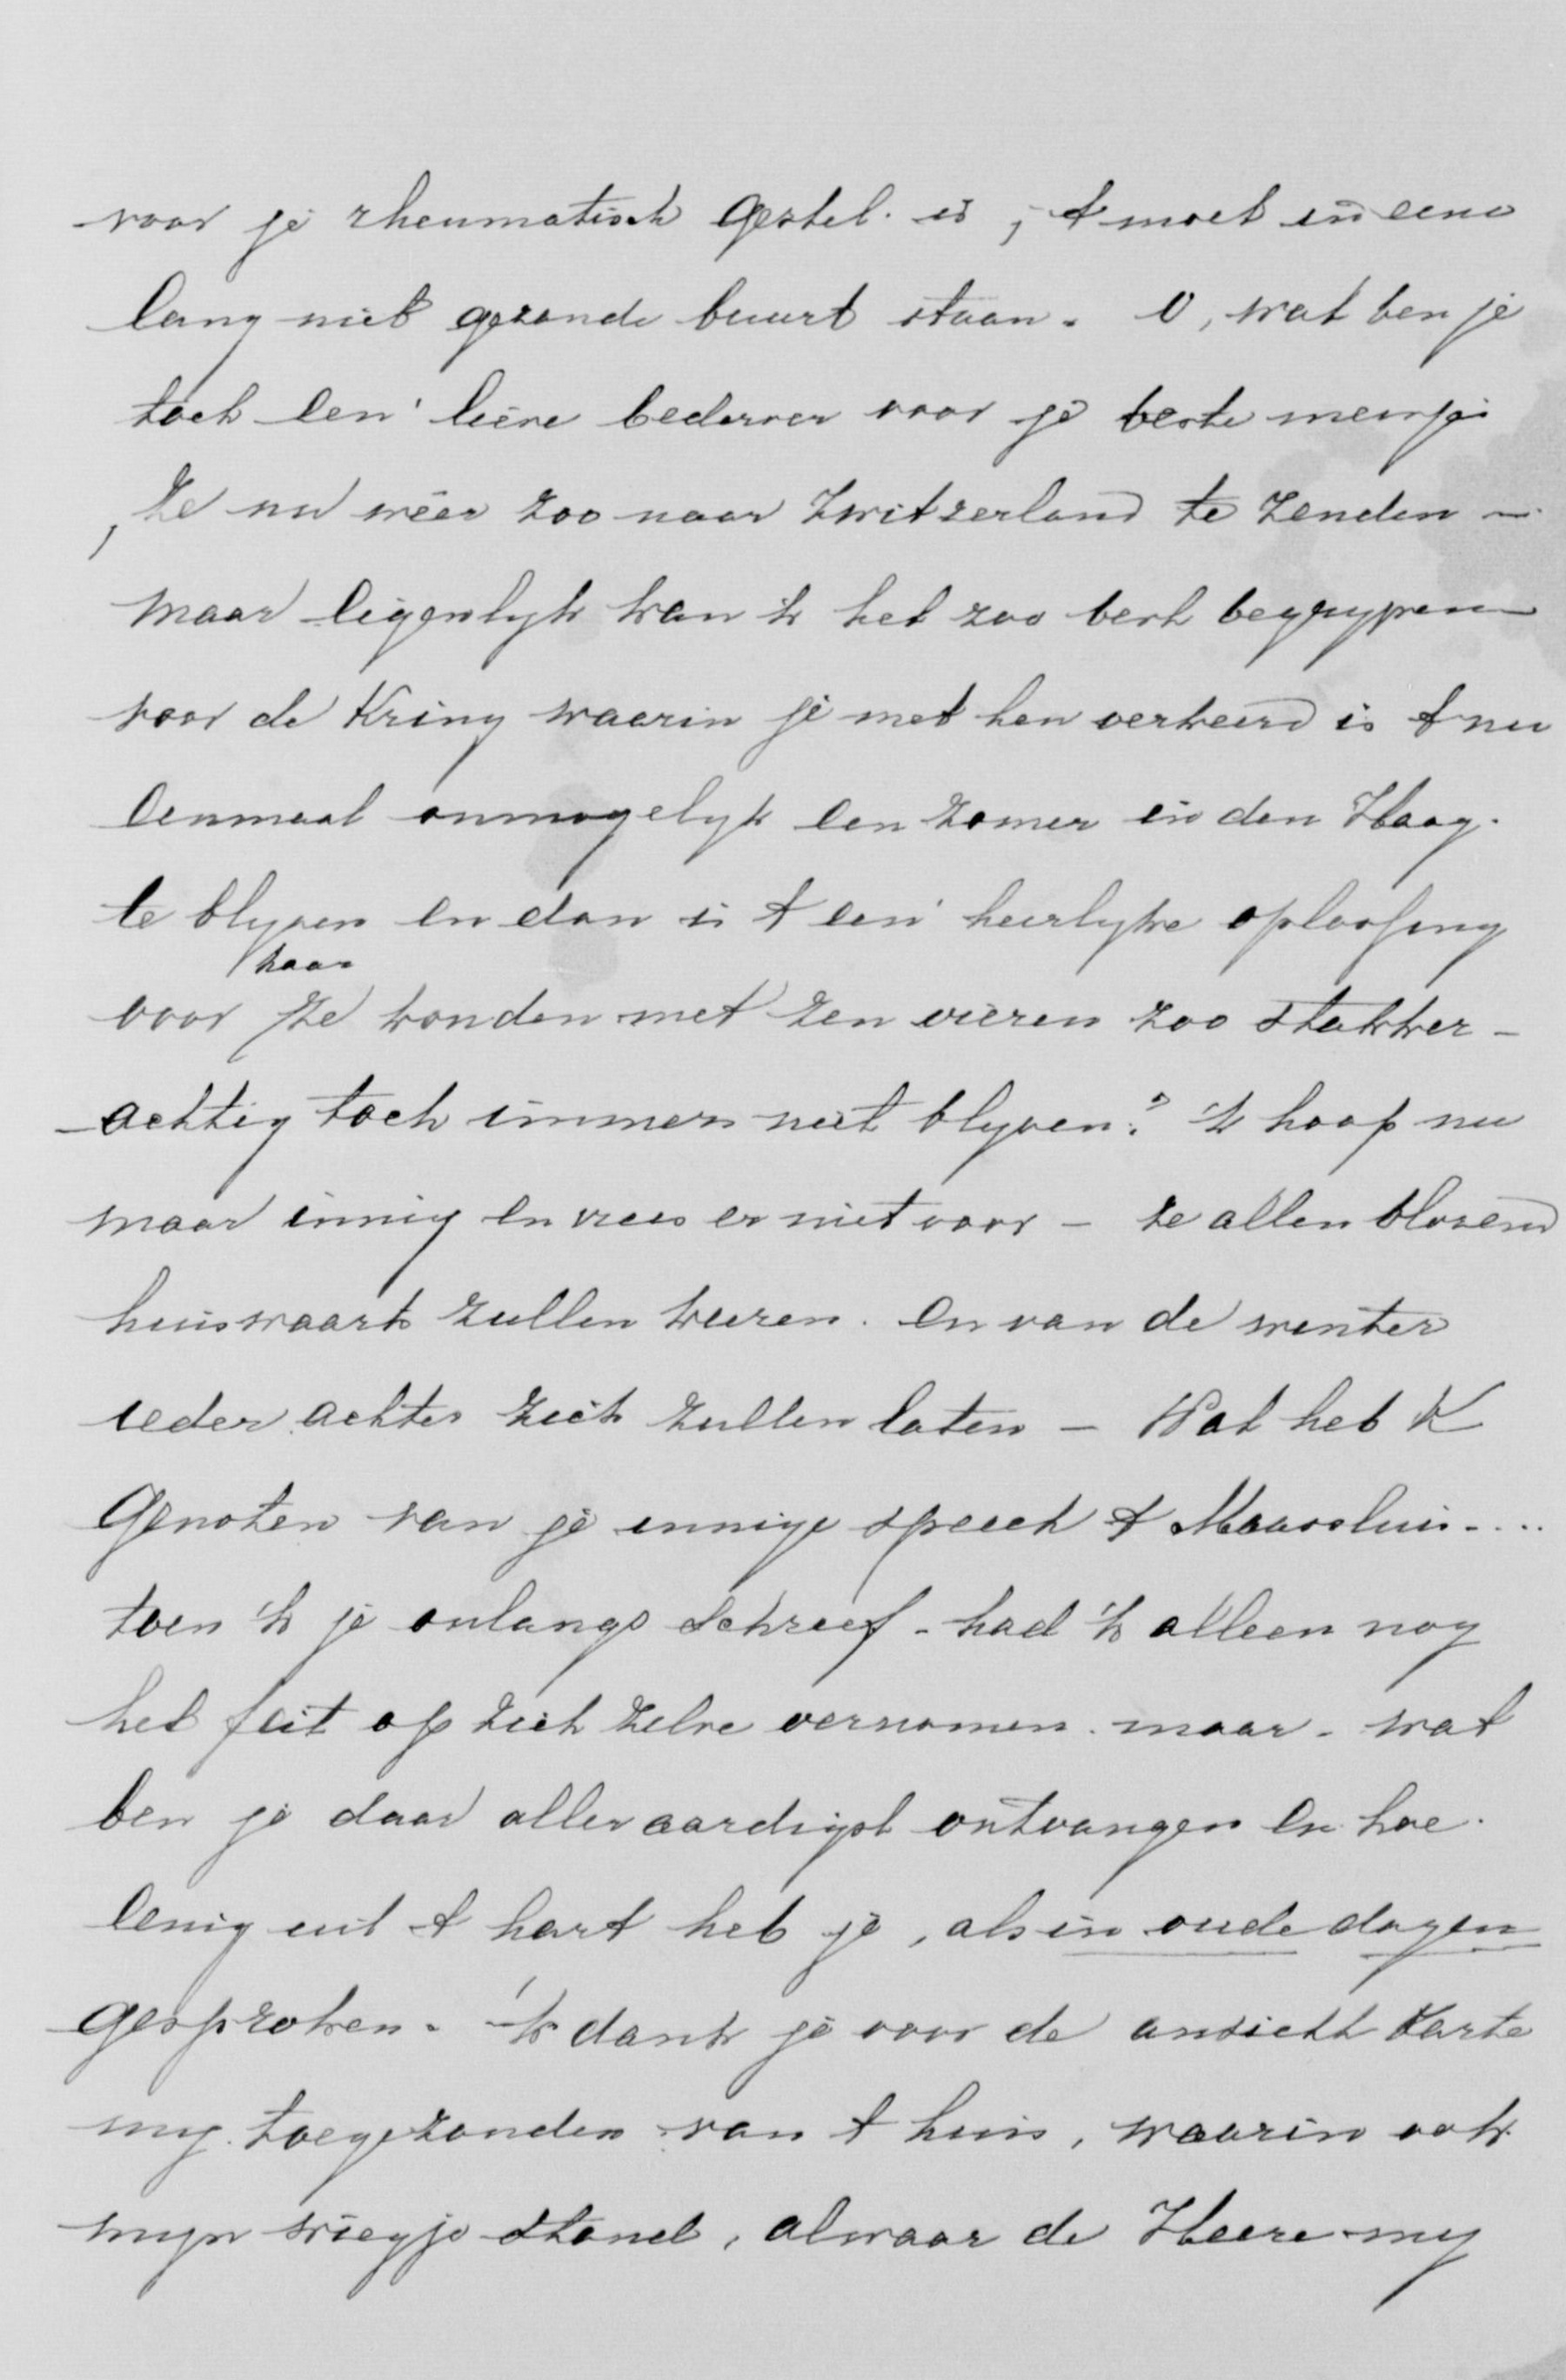 voor je rheumatisch gestel is, 't moet in eene
lang niet gezonde buurt staan. O, wat ben je
toch een lieve bederver voor je beste mensjes
, ze nu wéér zoo naar Zwitzerland te zenden —
maar eigenlijk kan 'k het zoo best begrijpen
voor de Kring waarin je met hen verkeerd is 't nu
eenmaal onmogelijk een zomer in den Haag.
te blijven en dan is 't een heerlijke oplossing
haar
voor ze konden met zen vieren zoo stakker-
-achtig toch immers niet blijven? 'k hoop nu
maar innig en vrees er niet voor — ze allen blozend
huiswaarts zullen keeren. en van de winter
ieder achter zich zullen laten — Wat heb 'k
genoten van je innige speech te Maassluis....
toen 'k je onlangs schreef - had 'k alleen nog
het feit op zich zelve vernomen. maar - wat
ben je daar alleraardigst ontvangen en hoe
eenig uit 't hart heb je, als in oude dagen
gesproken. 'k dank je voor de ansicht Karte
mij toegezonden van 't huis, waarin ook
mijn wiegje stond, alwaar de Heere mij